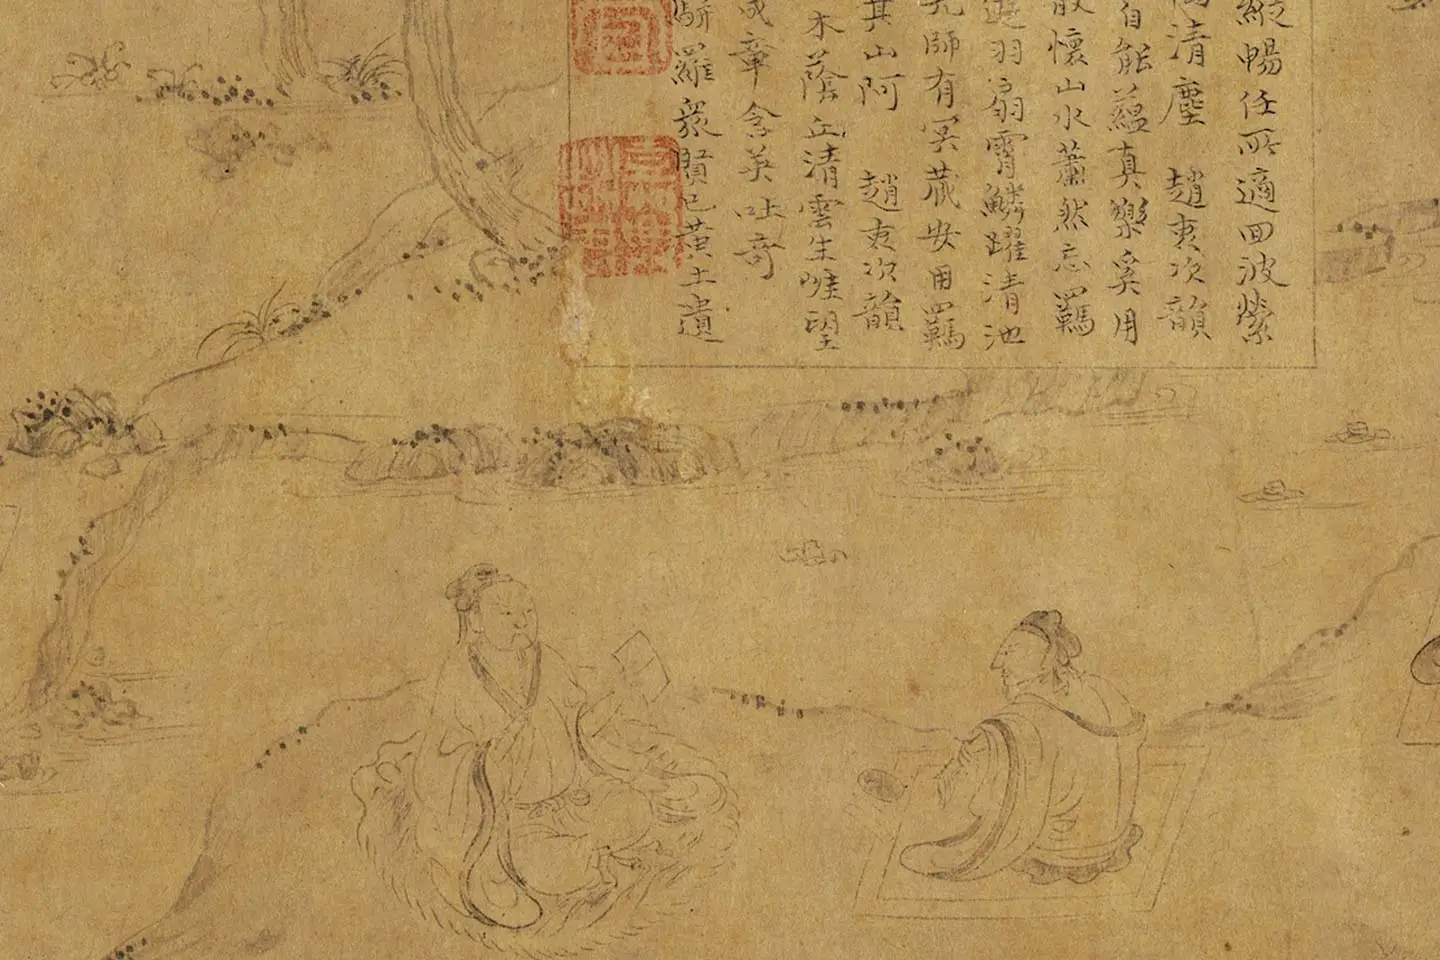 縱暢任所適回波縈
清塵 趙夷次韻
自能蘊真樂奚用
散懷山水蕭然忘羈
遊羽扇霄鱗躍清池
先師有冥藏安用羈
其山阿 趙夷次韻
木蔭丘清雲生唯望
成章含英吐奇
駢羅衆賢已黃土遺